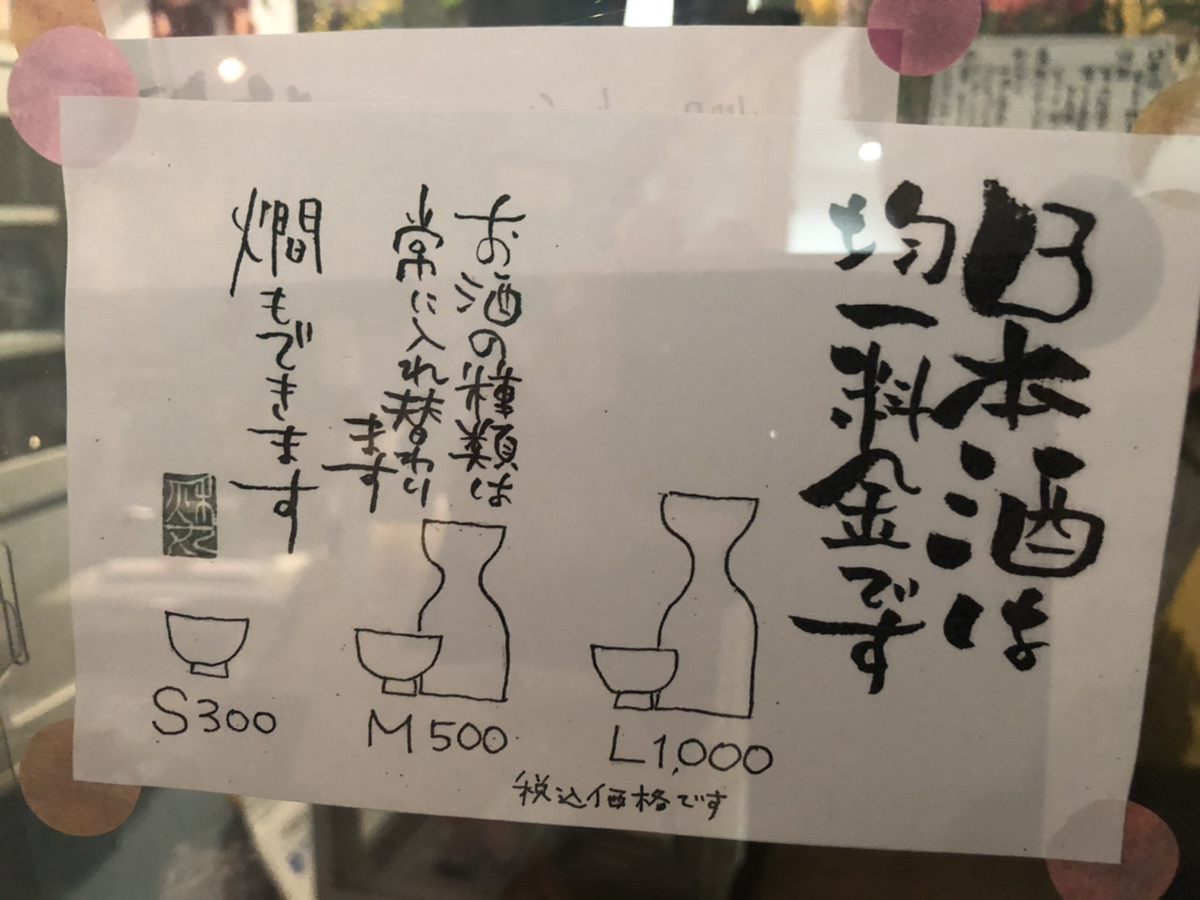 日本酒は
均一料金です
お酒の種類は
常に入れ替わり
ます
燗もできます
S300
M500
L1,000
税込価格です